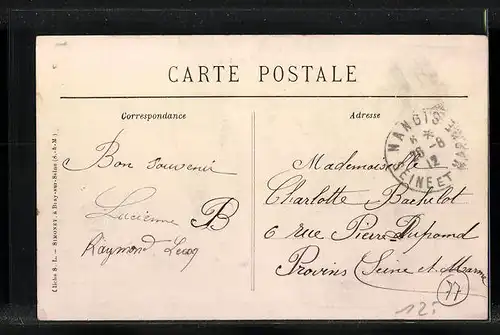 CARTE POSTALE
Correspondance
Adresse
Bon souvenir
Lucienne B
Raymond Lecoq
Mademoiselle
Charlotte Bachelot
6 rue Pierre Dupond
Provins (Seine et Marne
77
12?
NANGIS
6 *
26 - 8
12
SEINE ET MARNE
Cliché S. L. — SIMONET, à Bray-sur-Seine (S.-&-M.)